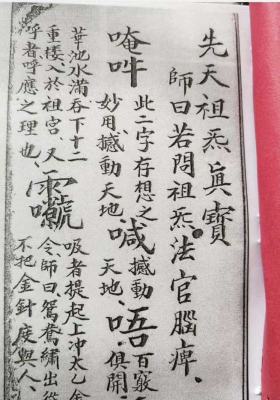 先天祖炁眞寶
師曰若問祖炁法官腦痺、
唵吽
此二字存想之
妙用撼動天地、
喊
撼動
天地、
唔
百竅
俱開
華池水滿吞下十二
重楼入於祖宮、又
呼者呼應之理也、
吸者提起上冲太乙金
令、師曰、鴛鴦繡出從
不把金針度與人、